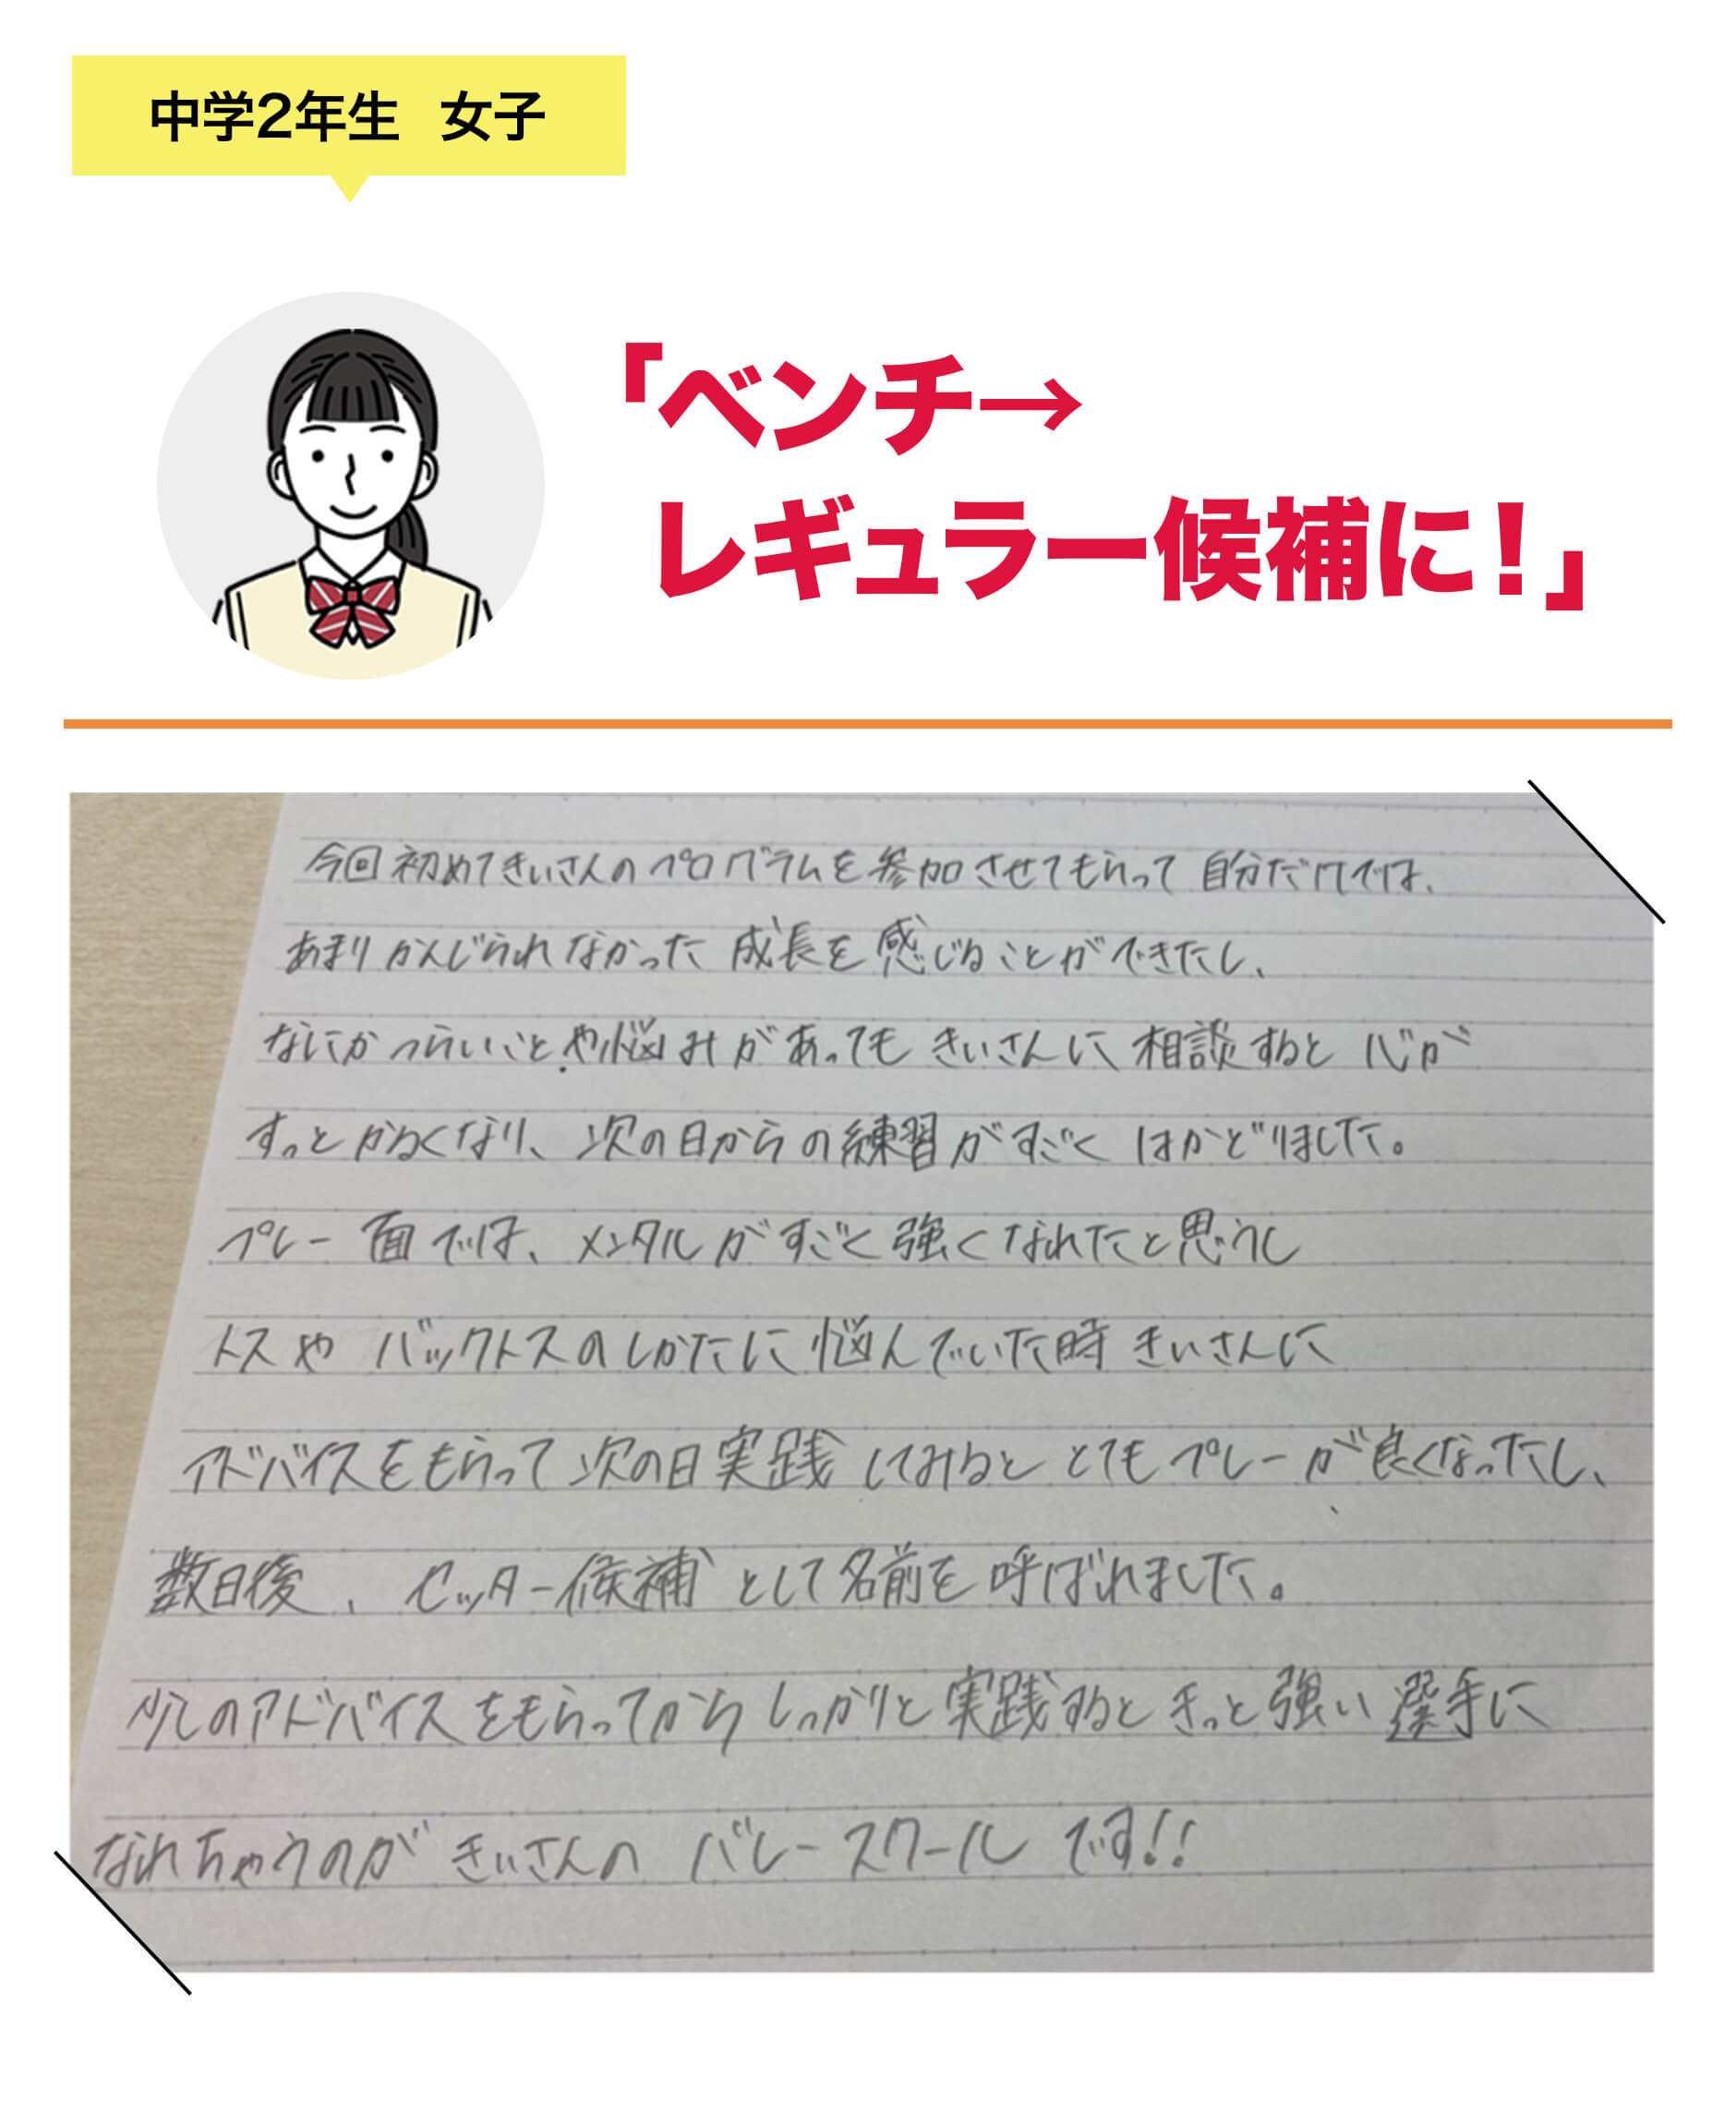 中学2年生 女子
「ベンチ→
レギュラー候補に！」
今回初めてきいさんのプログラムを参加させてもらって自分だけでは、
あまりかんじられなかった成長を感じることができたし、
なにかつらいことや悩みがあってもきいさんに相談すると心が
すっとかるくなり、次の日からの練習がすごくはかどりました。
プレー面では、メンタルがすごく強くなれたと思うし
トスやバックトスのしかたに悩んでいた時きいさんに
アドバイスをもらって次の日実践してみるととてもプレーが良くなったし、
数日後、セッター候補として名前を呼ばれました。
少しのアドバイスをもらってからしっかりと実践するときっと強い選手に
なれちゃうのがきいさんのバレースクールです!!